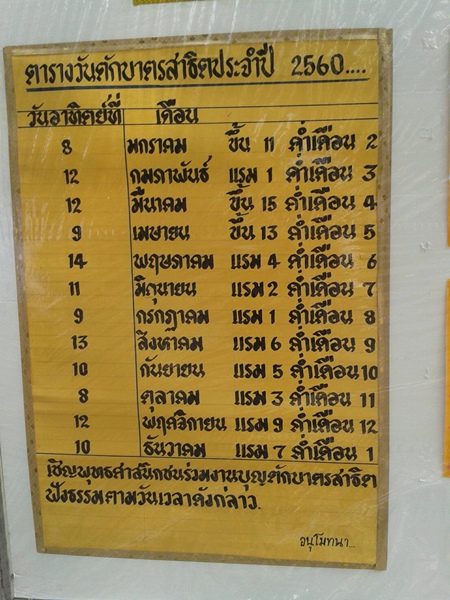 ตารางวันตักบาตรสาธิตประจำปี 2560....
วันอาทิตย์ที่ เดือน
8 มกราคม ขึ้น 11 ค่ำเดือน 2
12 กุมภาพันธ์ แรม 1 ค่ำเดือน 3
12 มีนาคม ขึ้น 15 ค่ำเดือน 4
9 เมษายน ขึ้น 13 ค่ำเดือน 5
14 พฤษภาคม แรม 4 ค่ำเดือน 6
11 มิถุนายน แรม 2 ค่ำเดือน 7
9 กรกฎาคม แรม 1 ค่ำเดือน 8
13 สิงหาคม แรม 6 ค่ำเดือน 9
10 กันยายน แรม 5 ค่ำเดือน 10
8 ตุลาคม แรม 3 ค่ำเดือน 11
12 พฤศจิกายน แรม 9 ค่ำเดือน 12
10 ธันวาคม แรม 7 ค่ำเดือน 1
เชิญพุทธศาสนิกชนร่วมงานบุญตักบาตรสาธิต
ฟังธรรมตามวันเวลาดังกล่าว.
อนุโมทนา...